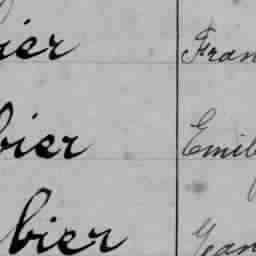 ier Fran
bier Emil
bier Jan